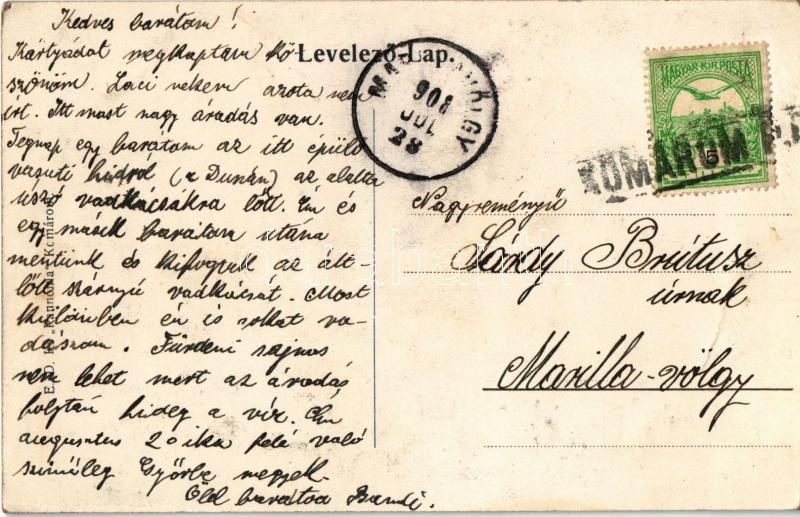 Kedves barátom!
Levelező-Lap.
Kártyádat megkaptam kö-
szönöm. Laci nekem azota nem
írt. Itt most nagy áradás van.
Tegnap egy barátom az itt épülő
vasuti hídról (a Dunán) az alatta
úszó vadkácsákra lőtt. Én és
egy másik barátom utána
mentünk és kifogtuk az átt-
lőtt szárnyú vadkácsát. Most
különben én is sokat va-
dászom. Fürdeni sajnos
nem lehet mert az áradás
folytán hideg a víz. Én
augusztus 20 ika felé való
színüleg Győrbe megyek.
Ölel barátod Bandi.
908
JUL
28
MAGYAR KIR. POSTA
5
KOMÁROM
Nagyreményü
Sárdy Brútusz
úrnak
Marilla-völgy